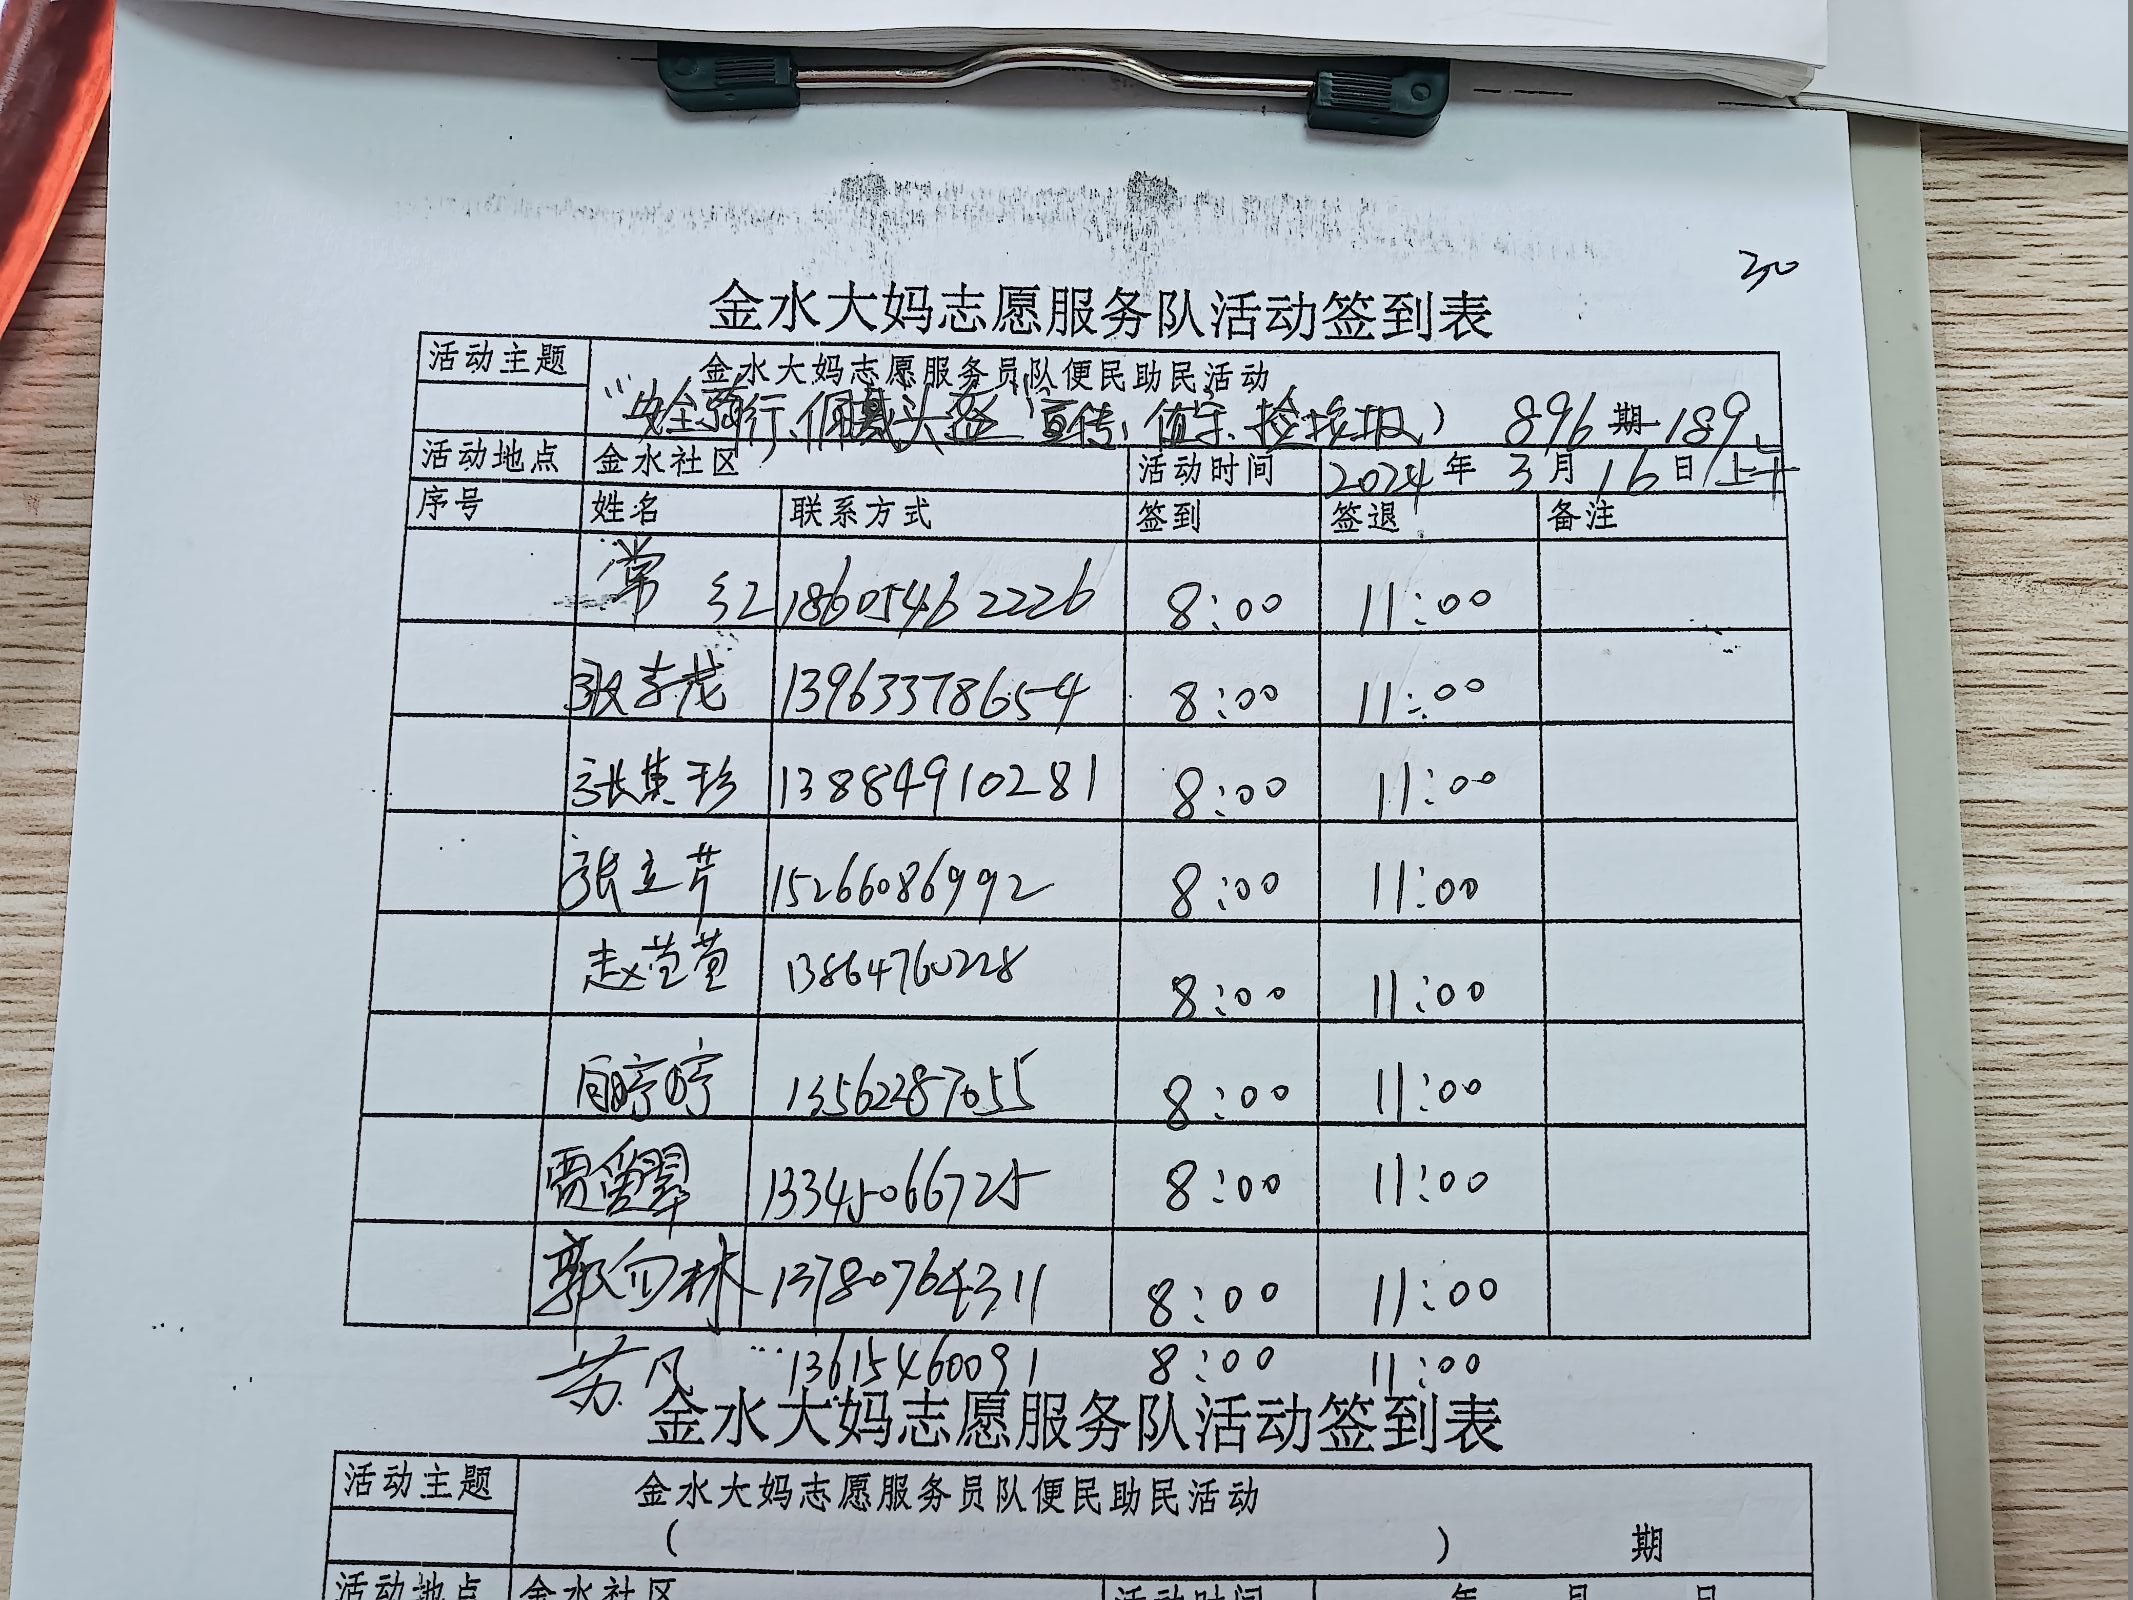 30
金水大妈志愿服务队活动签到表
活动主题 金水大妈志愿服务员队便民助民活动
"安全骑行、佩戴头盔"宣传、值守、捡垃圾) 896期 189
活动地点 金水社区 活动时间 2024年3月16日/上午
序号 姓名 联系方式 签到 签退 备注
常红 18605462226 8:00 11:00
张春茂 13963378654 8:00 11:00
张集珍 13884910281 8:00 11:00
张立芹 15266086992 8:00 11:00
赵萱萱 13864760228 8:00 11:00
周婷婷 13562287055 8:00 11:00
贾爱翠 13345066725 8:00 11:00
郭向林 13780764311 8:00 11:00
苏凡 13615460091 8:00 11:00
金水大妈志愿服务队活动签到表
活动主题 金水大妈志愿服务员队便民助民活动
( ) 期
活动地点 金水社区 活动时间 年 月 日